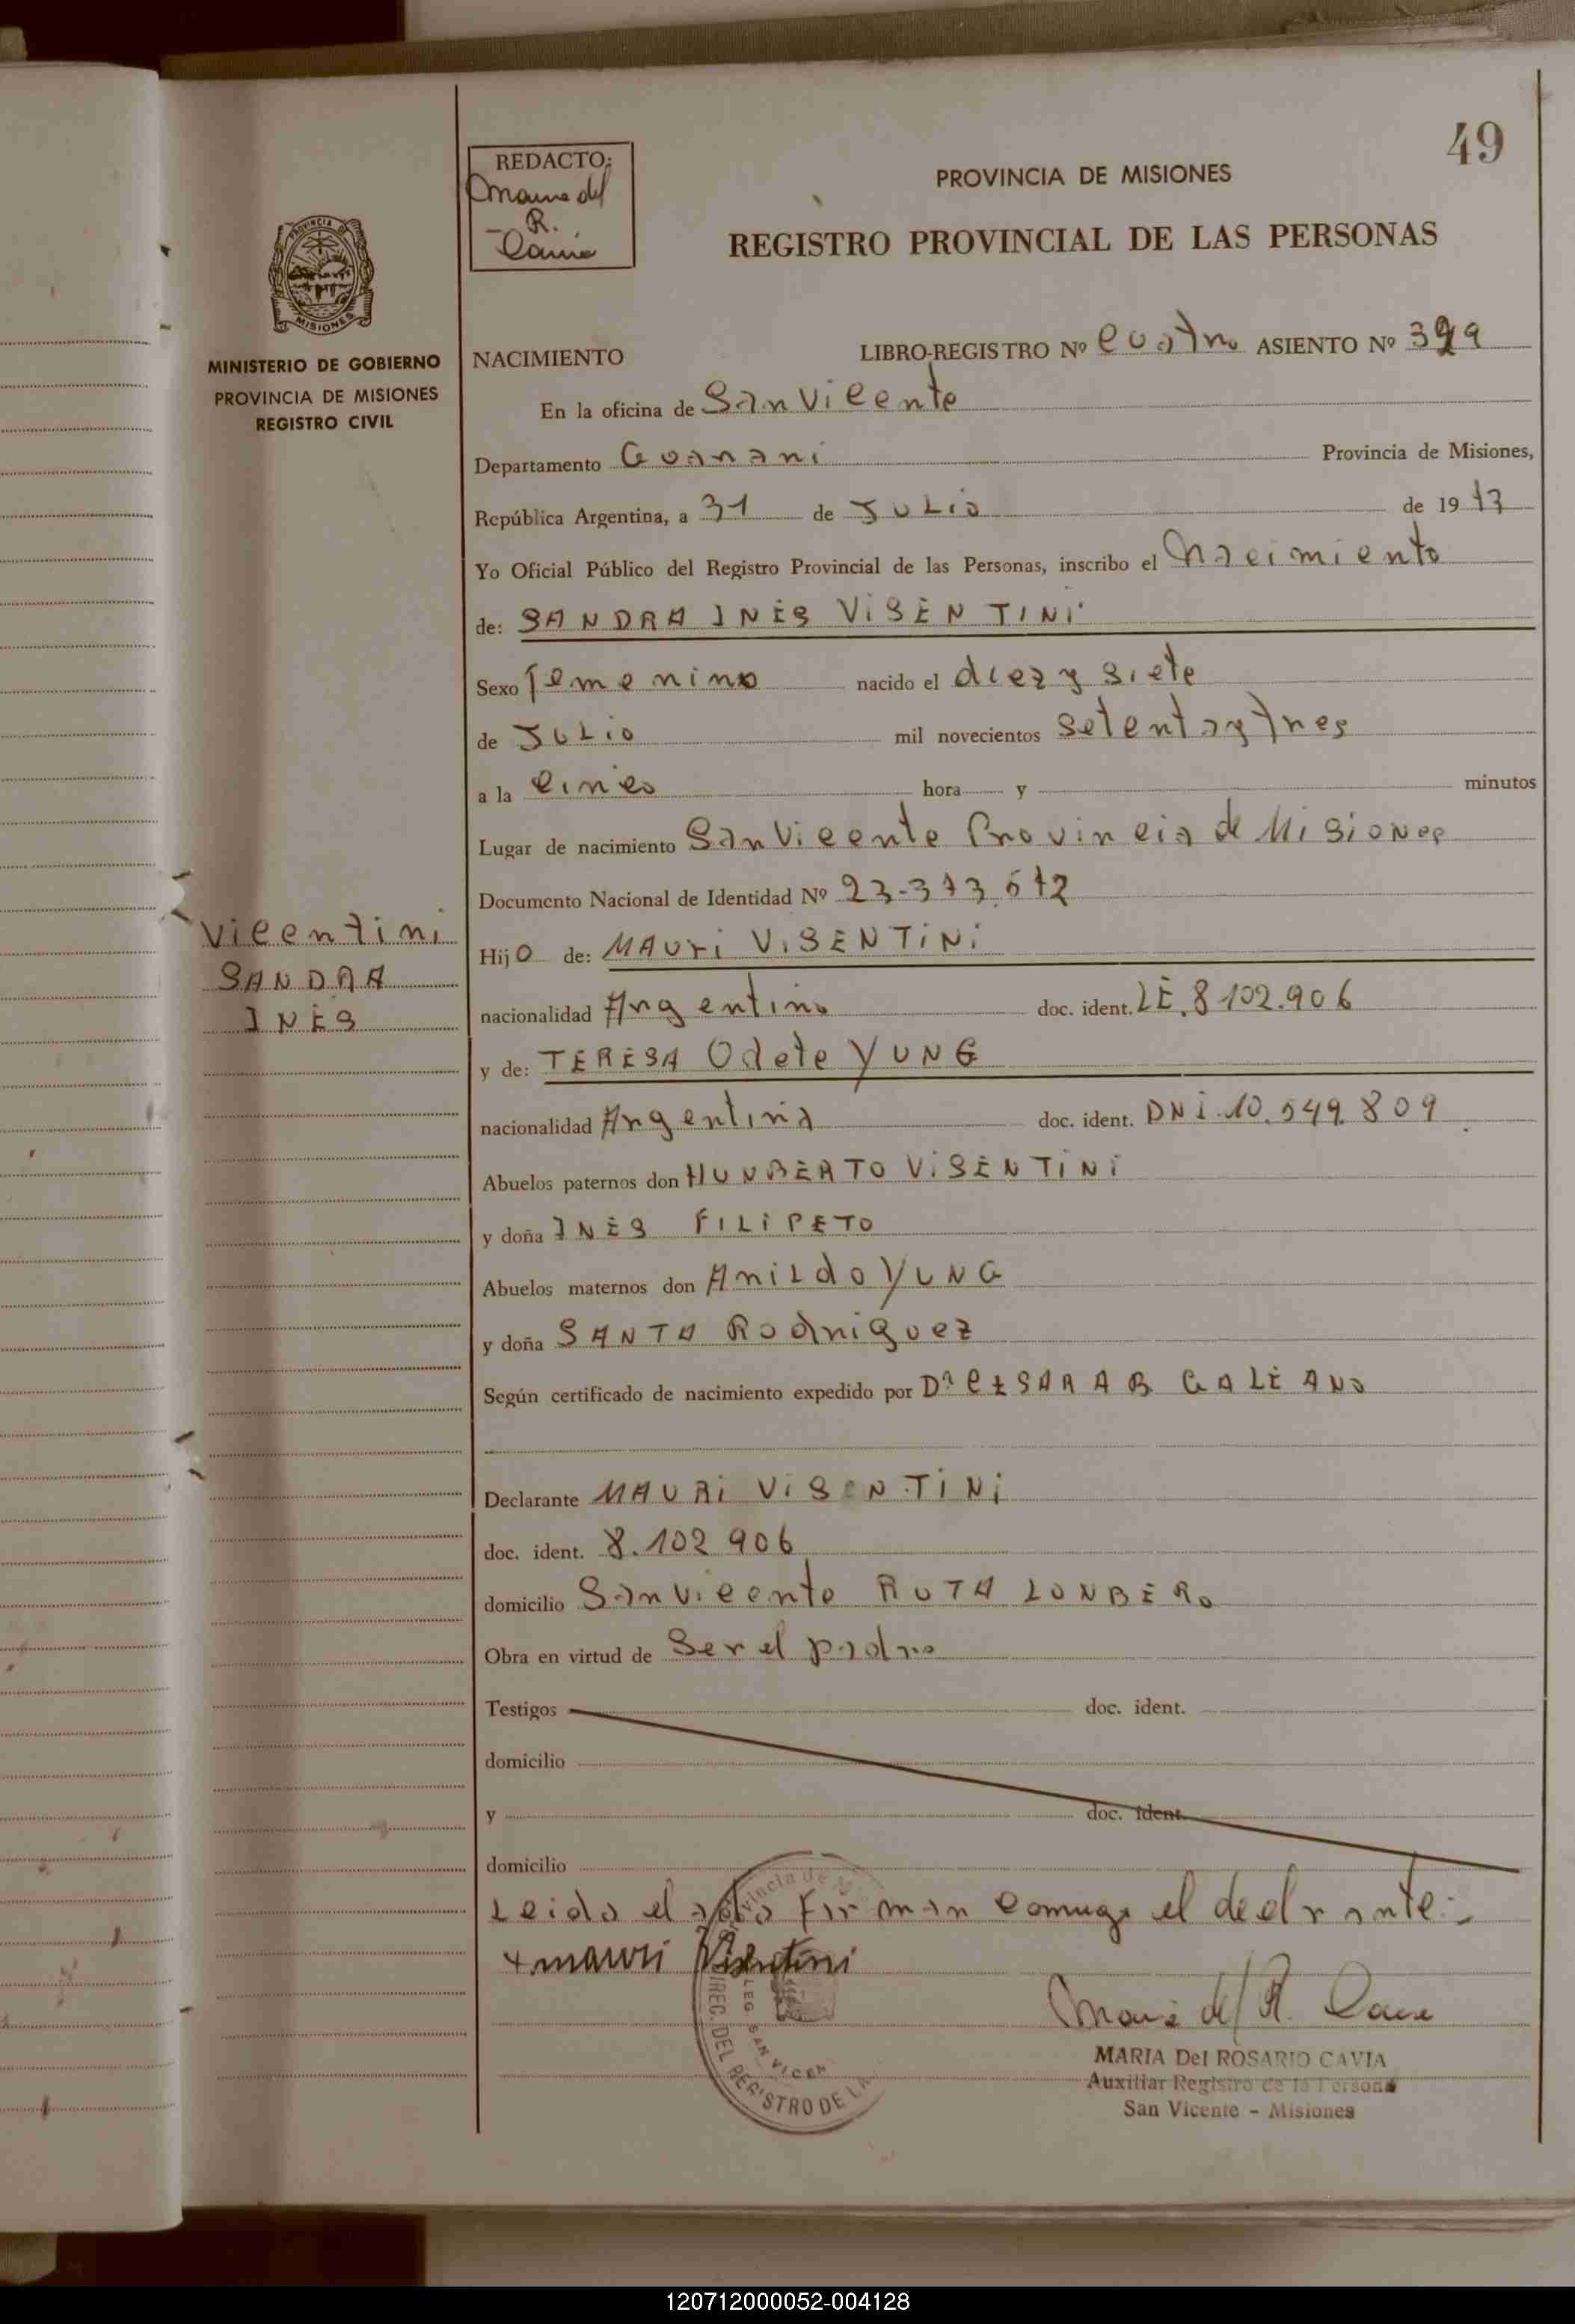 49
REDACTO:
Maria del
R.
Cavia
PROVINCIA DE MISIONES
REGISTRO PROVINCIAL DE LAS PERSONAS
PROVINCIA DE
MISIONES
MINISTERIO DE GOBIERNO
PROVINCIA DE MISIONES
REGISTRO CIVIL
NACIMIENTO LIBRO-REGISTRO Nº cuatro ASIENTO Nº
En la oficina de San Vicente
Departamento Guarani Provincia de Misiones,
República Argentina, a 31 de JULio de 19 73
Yo Oficial Público del Registro Provincial de las Personas, inscribo el Nacimiento
de: SANDRA INÉS ViSENTINi
Sexo femenino nacido el diez y siete
de JULio mil novecientos setenta y tres
a la cinco hora y minutos
Lugar de nacimiento San Vicente Provincia de MisioNes
Documento Nacional de Identidad Nº 23-373.572
Vicentini
SANDRA
INÉS
Hijo de: MAUri ViSENTiNi
nacionalidad Argentino doc. ident. LE. 8102.906
y de: TERESA Odete YUNG
nacionalidad Argentina doc. ident. DNi.10.549.809
Abuelos paternos don HUNBERTO ViSENTiNi
y doña INÉS FILiPETO
Abuelos maternos don ArniLdo YUNG
y doña SANTA Rodriguez
Según certificado de nacimiento expedido por Dª CESARA B GALEANO
Declarante MAURi ViSENTiNi
doc. ident. 8.102 906
domicilio San Vicente RUTA LUNBERO
Obra en virtud de Ser el padre
Testigos doc. ident.
domicilio
y doc. ident.
domicilio
Leido el acta firman comugo el declrante:
+ mauri Visentini
Maria del R. Cavia
MARIA Del ROSARIO CAVIA
Auxiliar Registro de la Persona
San Vicente - Misiones
DIREC. DEL REGISTRO DE LA
LEG SAN VICEN
120712000052-004128